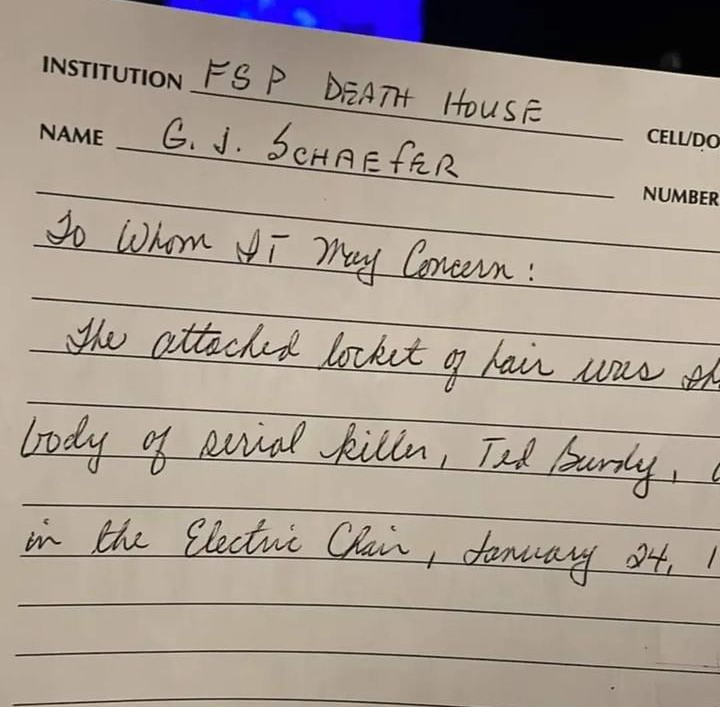 INSTITUTION FSP DEATH HOUSE
CELL/DO
NAME G. J. SCHAEFER
NUMBER
To Whom It May Concern:
The attached locket of hair was sh
body of serial killer, Ted Bundy,
in the Electric Chair, January 24, 1